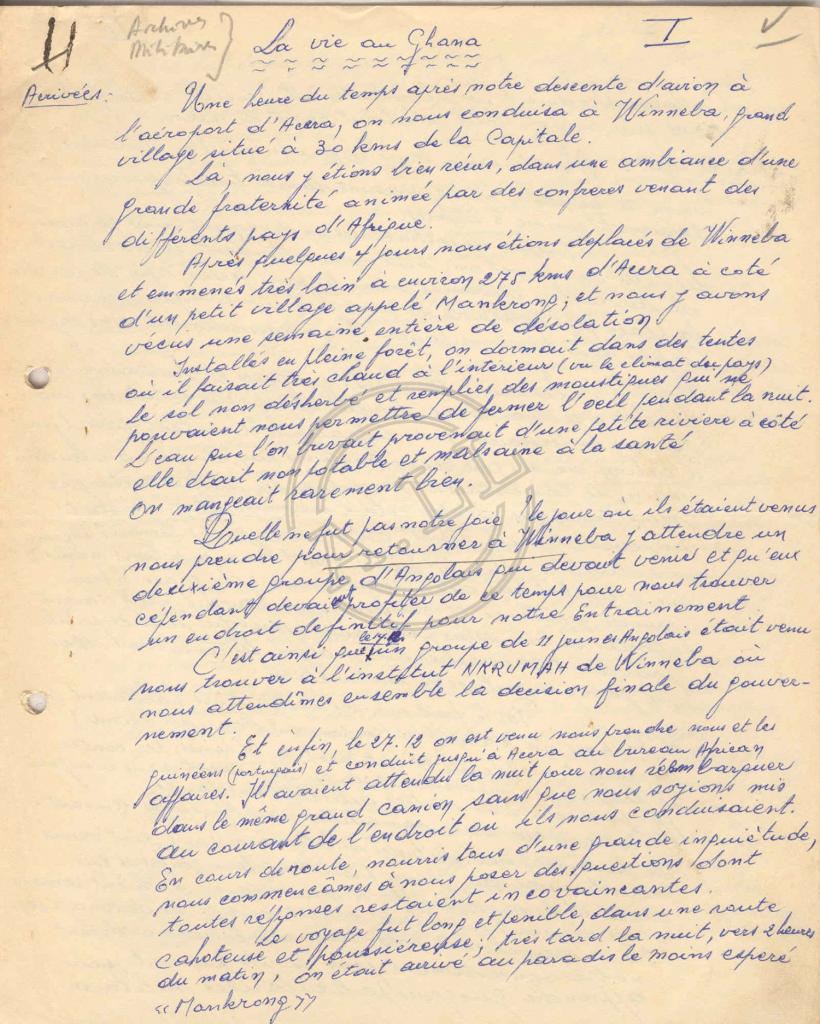 H
Archives
Militaires
La vie au Ghana
I
Arrivées:
Une heure du temps après notre descente d'avion à
l'aéroport d'Accra, on nous conduisa à Winneba, grand
village situé à 30 kms de la Capitale.
La, nous y étions bien récus, dans une ambiance d'une
grande fraternité animée par des confreres venant des
différents pays d'Afrique.
Après quelques 4 jours nous étions deplacés de Winneba
et emmenés très loin à environ 275 kms d'Accra à coté
d'un petit village appelé Mankrong; et nous y avons
vécus une semaine entière de désolation.
Installés en pleine forêt, on dormait dans des tentes
où il faisait très chaud à l'intérieur (vu le climat du pays)
le sol non désherbé et remplies des moustiques qui ne
pouvaient nous permettre de fermer l'oeil pendant la nuit.
L'eau que l'on buvait provenait d'une petite rivière à côté
elle était non potable et malsaine à la santé
On mangeait rarement bien.
Quelle ne fut pas notre joie le jour où ils étaient venus
nous prendre pour retourner à Winneba y attendre un
deuxième groupe d'Angolais qui devait venir et qu'eux
cépendant devaient profiter de ce temps pour nous trouver
un endroit definitif pour notre Entrainement
C'est ainsi que un groupe de 11 jeunes Angolais était venu
nous trouver à l'institut NKRUMAH de Winneba où
nous attendîmes ensemble la decision finale du gouver-
nement.
Et enfin, le 27.12 on est venu nous prendre nous et les
guinéens (portugais) et conduit jusqu'à Accra au bureau African
affaires. Ils avaient attendu la nuit pour nous réembarquer
dans le même grand camion sans que nous soyions mis
au courant de l'endroit où ils nous conduisaient.
En cours de route, nourris tous d'une grande inquiètude,
nous commencâmes à nous poser des questions dont
toutes réponses restaient incovaincantes.
Le voyage fut long et penible, dans une route
cahoteuse et poussiéreuse; très tard la nuit, vers 2 heures
du matin, on était arrivé au paradis le moins esperé
«Mankrong»